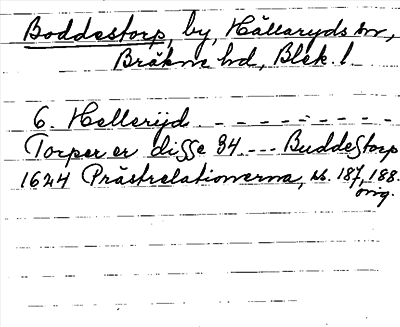 Boddestorp, by, Hällaryds sn,
Bräkne hd, Blek. l.
6. Hellerijd - - - - - - - - -
Torper er disse 34 - - - Buddestorp
1624 Prästrelationerna, s. 187, 188.
orig.